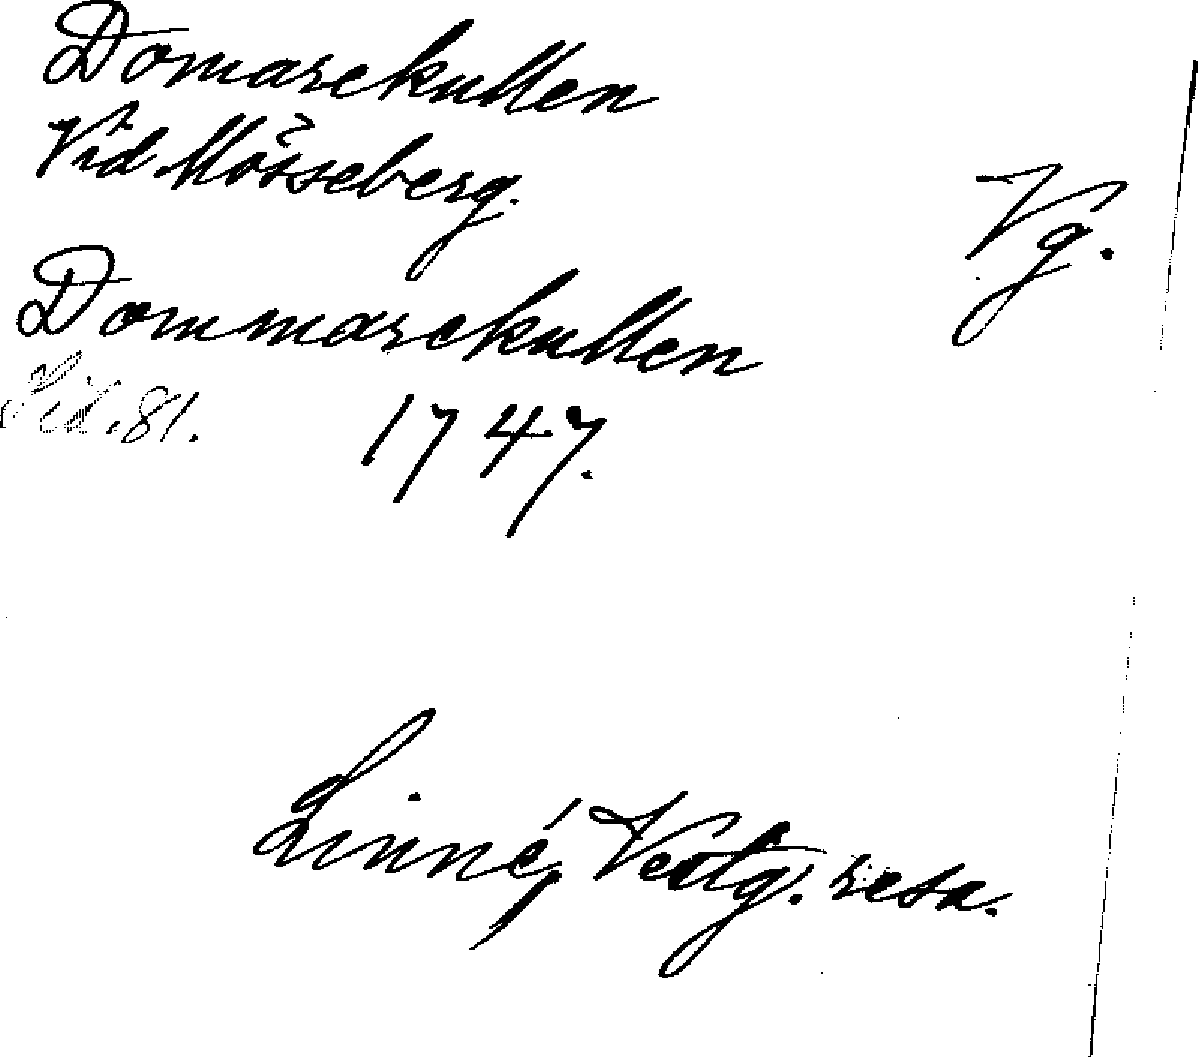 Domarekullen
Vid Mösseberg.
Vg.
Dommarekullen
Sid. 81.
1747.
Linné, Vestg. resa.